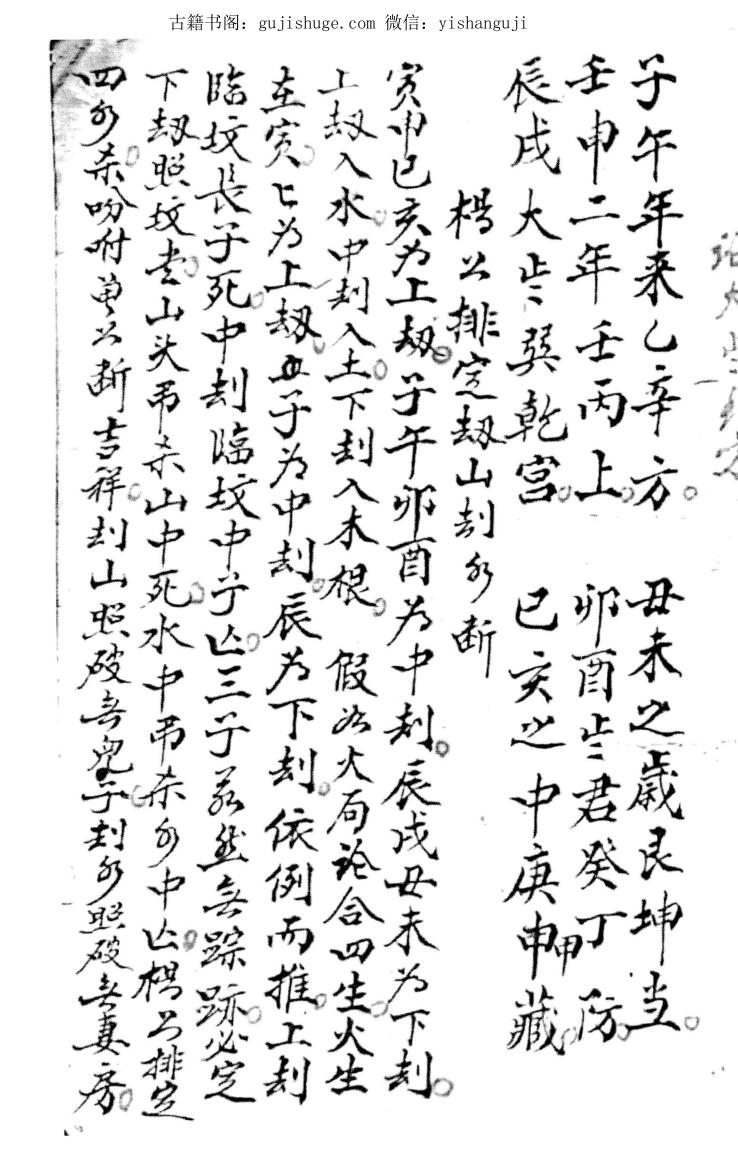 古籍书阁：gujishuge.com 微信：yishanguji
子午年来乙辛方。 丑未之歳艮坤当。
壬申二年壬丙上。 卯酉岂君癸丁防。
辰戌大岂巽乾宫。 已亥之中庚申甲藏。
楊公排定刼山刦水断
寅申巳亥为上刼。子午卯酉为中刦。辰戌丑未为下刦。
上刼入水。中刦入土。下刦入木根。 假如火局论合四生。火生
在寅。匕为上刼。丑子为中刦。辰为下刦。依例而推。上刦
临坟長子死。中刦临坟中子亡。三子若然無踪跡。必定
下刼照坟堂。山头吊杀山中死。水中吊杀水中亡。楊公排定
四水杀。吩咐曾公断吉祥。刦山照破無兒子。刦水照破無妻房。